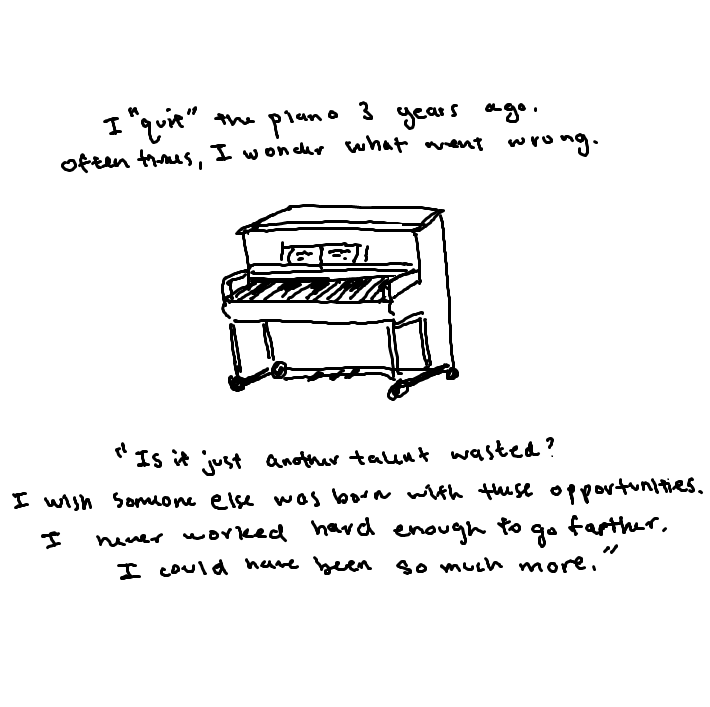 I "quit" the piano 3 years ago.
often times, I wonder what went wrong.
"Is it just another talent wasted?
I wish someone else was born with these opportunities.
I never worked hard enough to go farther.
I could have been so much more."